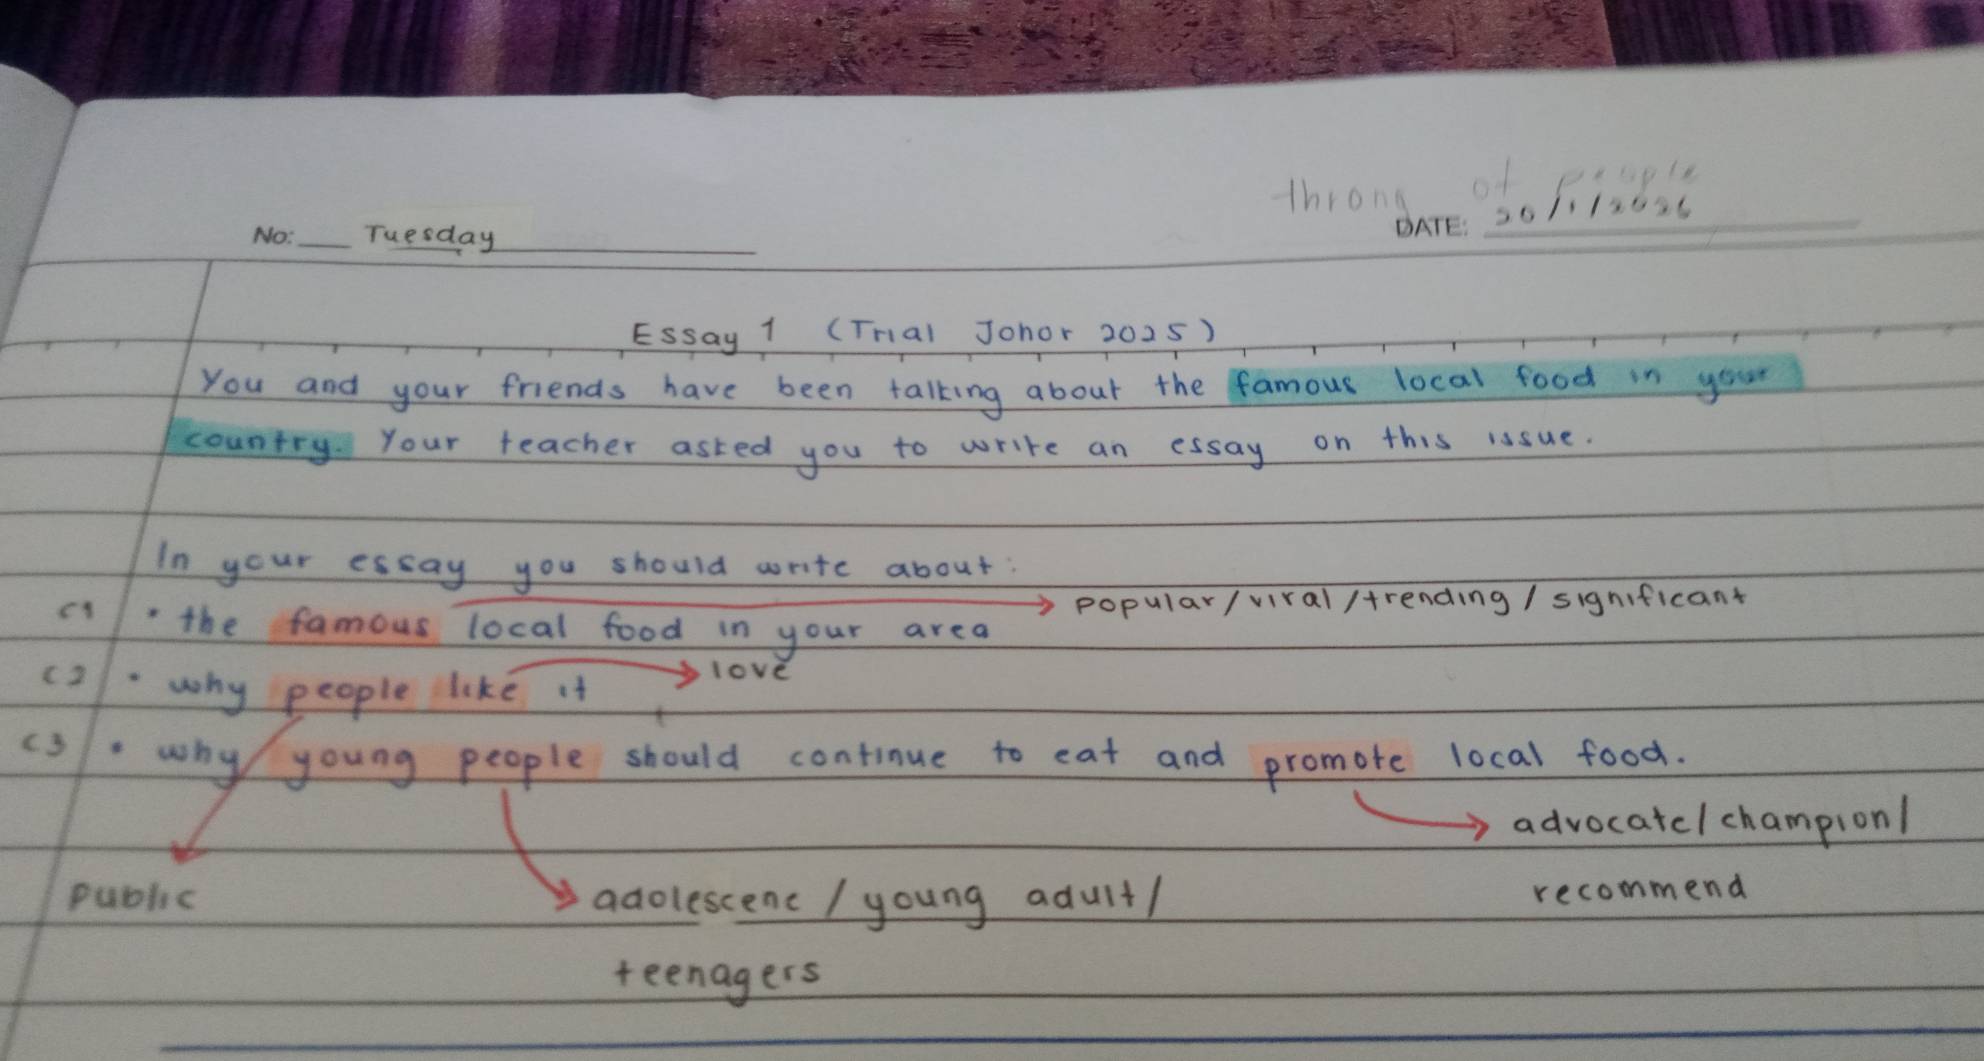 throng of people
No: Tuesday DATE: 20/1/2026
Essay 1 (Trial Johor 2025)
You and your friends have been talking about the famous local food in your
country. Your teacher asked you to write an essay on this issue.
In your essay you should write about:
popular/viral/trending/significant
C1 • the famous local food in your area
love
C2 • why people like it
C3 • why young people should continue to eat and promote local food.
advocate/champion/
public adolescenc/young adult/ recommend
teenagers